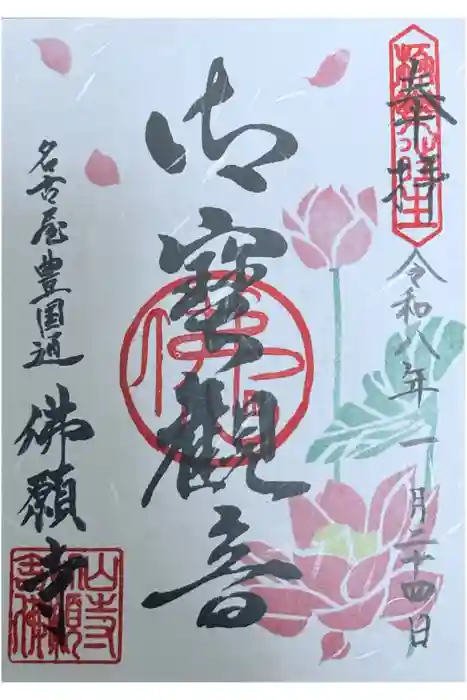 奉拝
令和八年一月二十四日
御寶觀音
名古屋豊国通
佛願寺